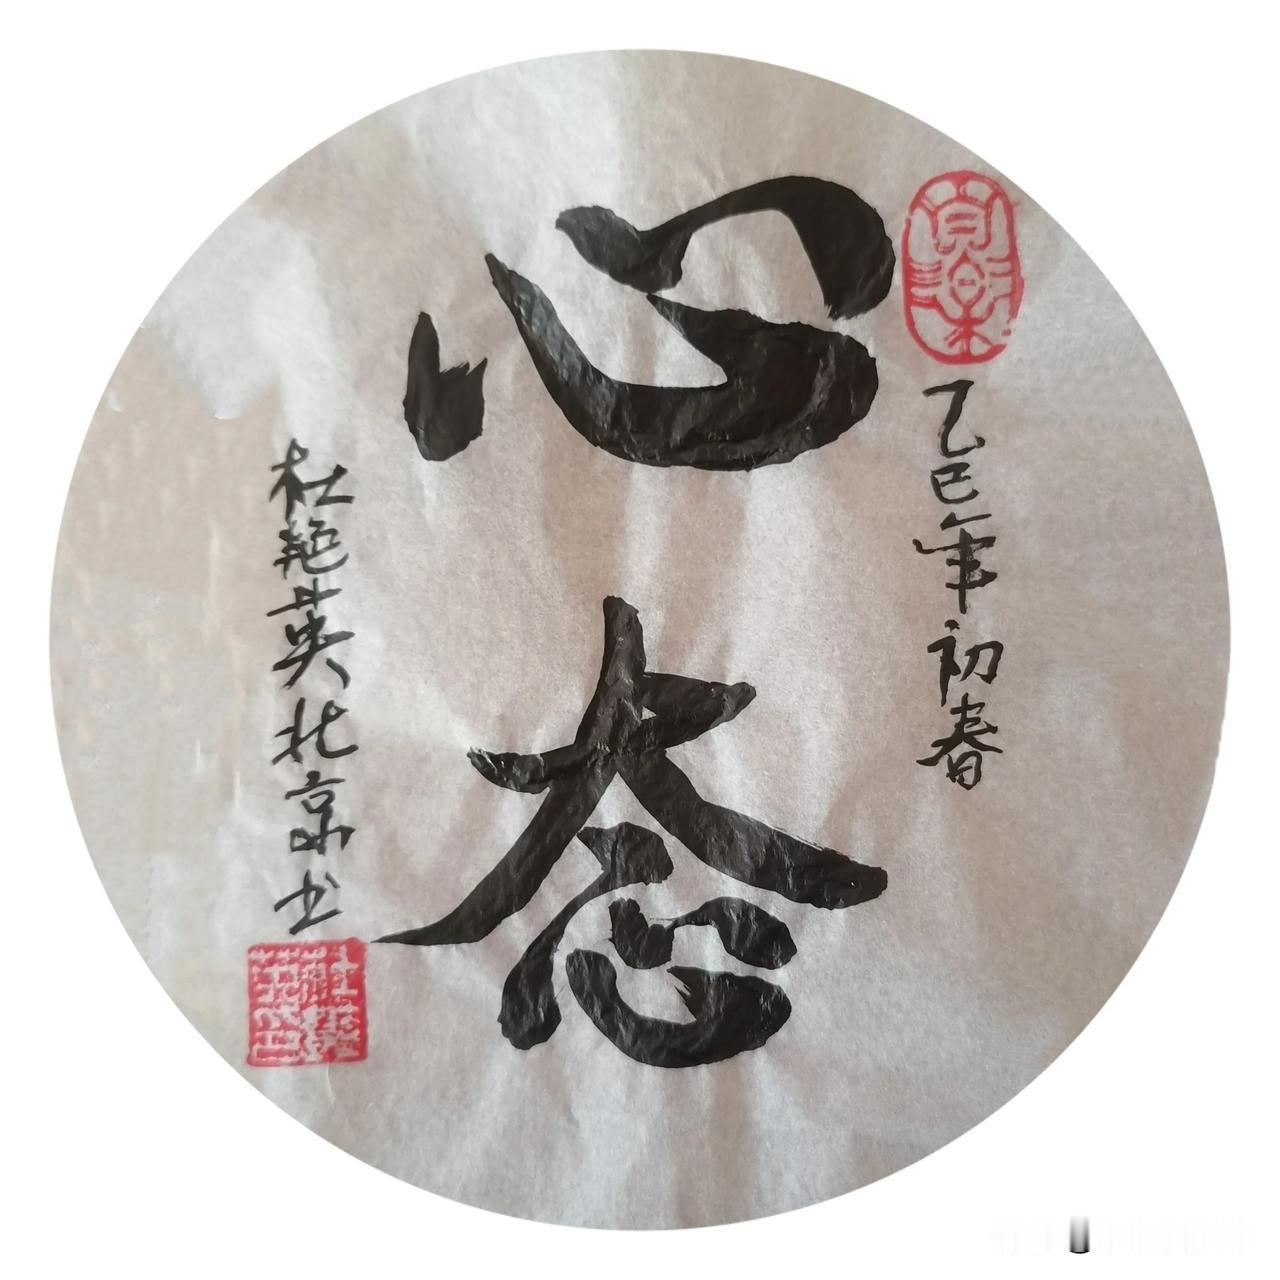 乙巳年初春
心态
杜艳英北京书